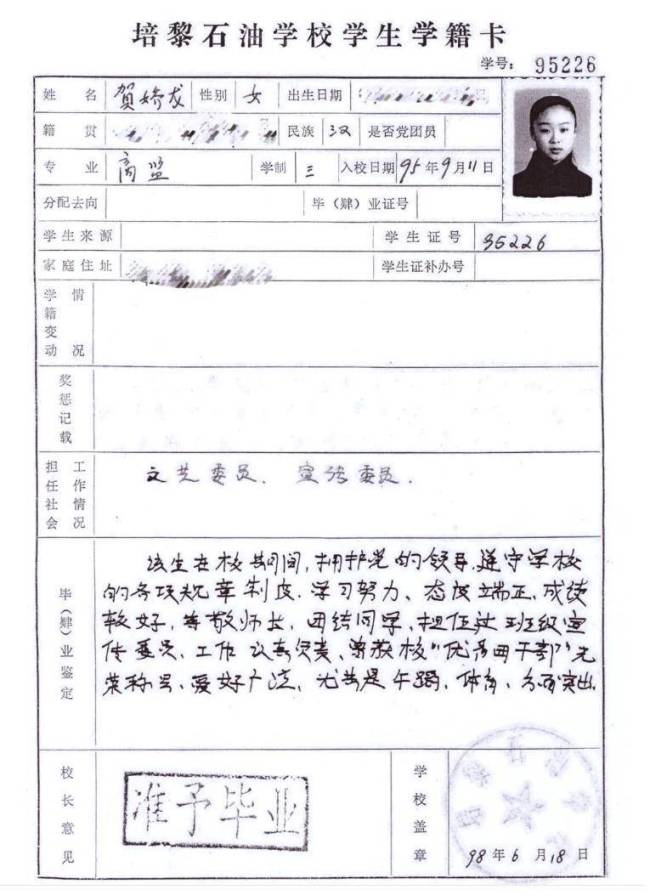 培黎石油学校学生学籍卡
学号：95226
姓名 賀娇龙 性别 女 出生日期
籍贯 民族 汉 是否党团员
专业 商监 学制 三 入校日期 95年9月11日
分配去向 毕（肄）业证号
学生来源 学生证号 95226
家庭住址 学生证补办号
学籍变动情况
奖惩记载
担任社会工作情况 文艺委员、宣传委员.
毕（肄）业鉴定
该生在校期间,拥护党的领导.遵守学校
的各项规章制度.学习努力、态度端正,成绩
较好,尊敬师长,团结同学,担任过班级宣
传委员、工作认真负责、曾获校"优秀团干部"光
荣称号、爱好广泛,尤其是午蹈,体育,方面突出.
校长意见 准予毕业
学校盖章 98年6月18日